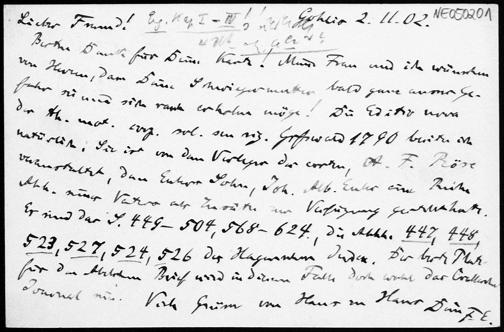 NE050201
Lieber Freund! Gohlis 2. 11. 02.
Besten Dank für Deine Karte! Meine Frau und ich wünschen
von Herzen, dass Deine Schwiegermutter bald ganz ausser Ge-
fahr sei und sich rasch erholen möge! Die Editio nova
der th. mot. corp. sol. seu rig. Greifswald 1790 besitze ich
natürlich; Sie ist von dem Verleger der ersten, A. F. Röse
veranstaltet, dem Eulers Sohn, Joh. Alb. Euler eine Reihe
Abh. seines Vaters als Zusätze zur Verfügung gestellt hatte.
Es sind das S. 449–504, 568–624, die Abhh. 447, 448,
523, 527, 524, 526 des Hagenschen Index. Der beste Platz
für den Abdruck Brief wird in diesem Falle doch wohl das Crellesche
Journal sein. Viele Grüsse von Haus zu Haus Dein F. E.